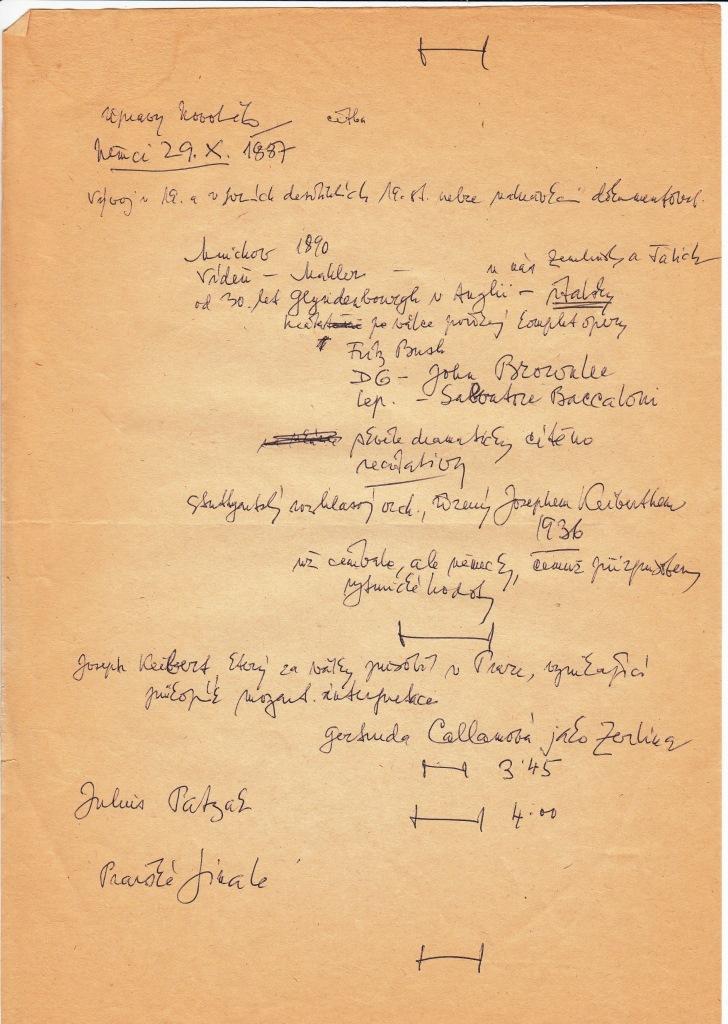 úpravy Novotného četba
Němci 29. X. 1887
Vývoj v 19. a v prvních desítiletích 19. st. nelze dokumentovat.
Mnichov 1890
Vídeň – Mahler – u nás Zemlinsky a Talich
od 30. let Glyndenbourgh v Anglii – italsky
po válce pořízený komplet opery
Fritz Bush
DG – John Brownlee
Lep. – Salvatore Baccaloni
skvěle dramaticky cítěno
recitativy
stuttgartský rozhlasový orch., řízený Josephem Keiberthem
1936
už cembalo, ale německy, čemuž přizpůsobeny
rytmické hodnoty
Joseph Keilbert, který za války působil v Praze, vynikající
mozart. interpretace
Gertruda Callamová jako Zerlina
3'45
Julius Patzak
4'00
Pražské finale